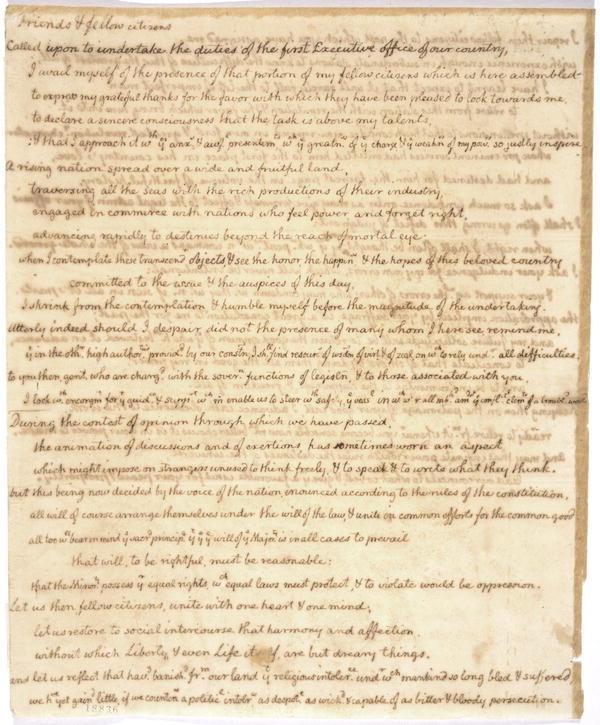 Friends & fellow citizens
Called upon to undertake the duties of the first Executive office of our country,
I avail myself of the presence of that portion of my fellow citizens which is here assembled
to express my grateful thanks for the favor with which they have been pleased to look towards me,
to declare a sincere consciousness that the task is above my talents,
& that I approach it wth yse anxs & awfl presentemts wch ye greatnss of ye charge & ye weakns of my powrs so justly inspire
A rising nation spread over a wide and fruitful land,
traversing all the seas with the rich productions of their industry,
engaged in commerce with nations who feel power and forget right,
advancing rapidly to destinies beyond the reach of mortal eye;
when I contemplate these transcendt objects & see the honor the happinss & the hopes of this beloved country
committed to the issue & the auspices of this day,
I shrink from the contemplation & humble myself before the magnitude of the undertaking.
Utterly indeed should I despair, did not the presence of many whom I here see, remind me,
yt in the othr high authorities providd by our constn, I shll find resources of wisdm of virte & of zeal, on wch to rely undr all difficulties,
to you then, gent. who are chargd with the sovern functions of legisln, & to those associated with you,
I look wth encorgmt for yt guidce & suppt wch m enable us to steer wth safty, ye vessl in wch we r all mbkd amdt ye conflictg elemts of a troubled world
During the contest of opinion through which we have passed,
the animation of discussions and of exertions, has sometimes worn an aspect
which might impose on strangers unused to think freely, & to speak & to write what they think.
but this being now decided by the voice of the nation, enounced according to the rules of the constitution,
all will of course arrange themselves under the will of the law, & unite in common efforts for the common good
all too wll bear in mind ys sacrd principle yt tho ye will of ye Majorty is in all cases to prevail
that will, to be rightful, must be reasonable:
that the Minorty possess yr equal rights, wch equal laws must protect, & to violate would be oppression.
Let us then, fellow citizens, unite with one heart & one mind;
let us restore to social intercourse that harmony and affection
without which Liberty, & even Life itself, are but dreary things.
and let us reflect that havg banishd from our land yt religious intolerce undr wch mankind so long bled & suffered
we hve yet gaind little, if we countence a politicl intolrce as despotc as wickd & capable of as bitter & bloody persecution.
18836